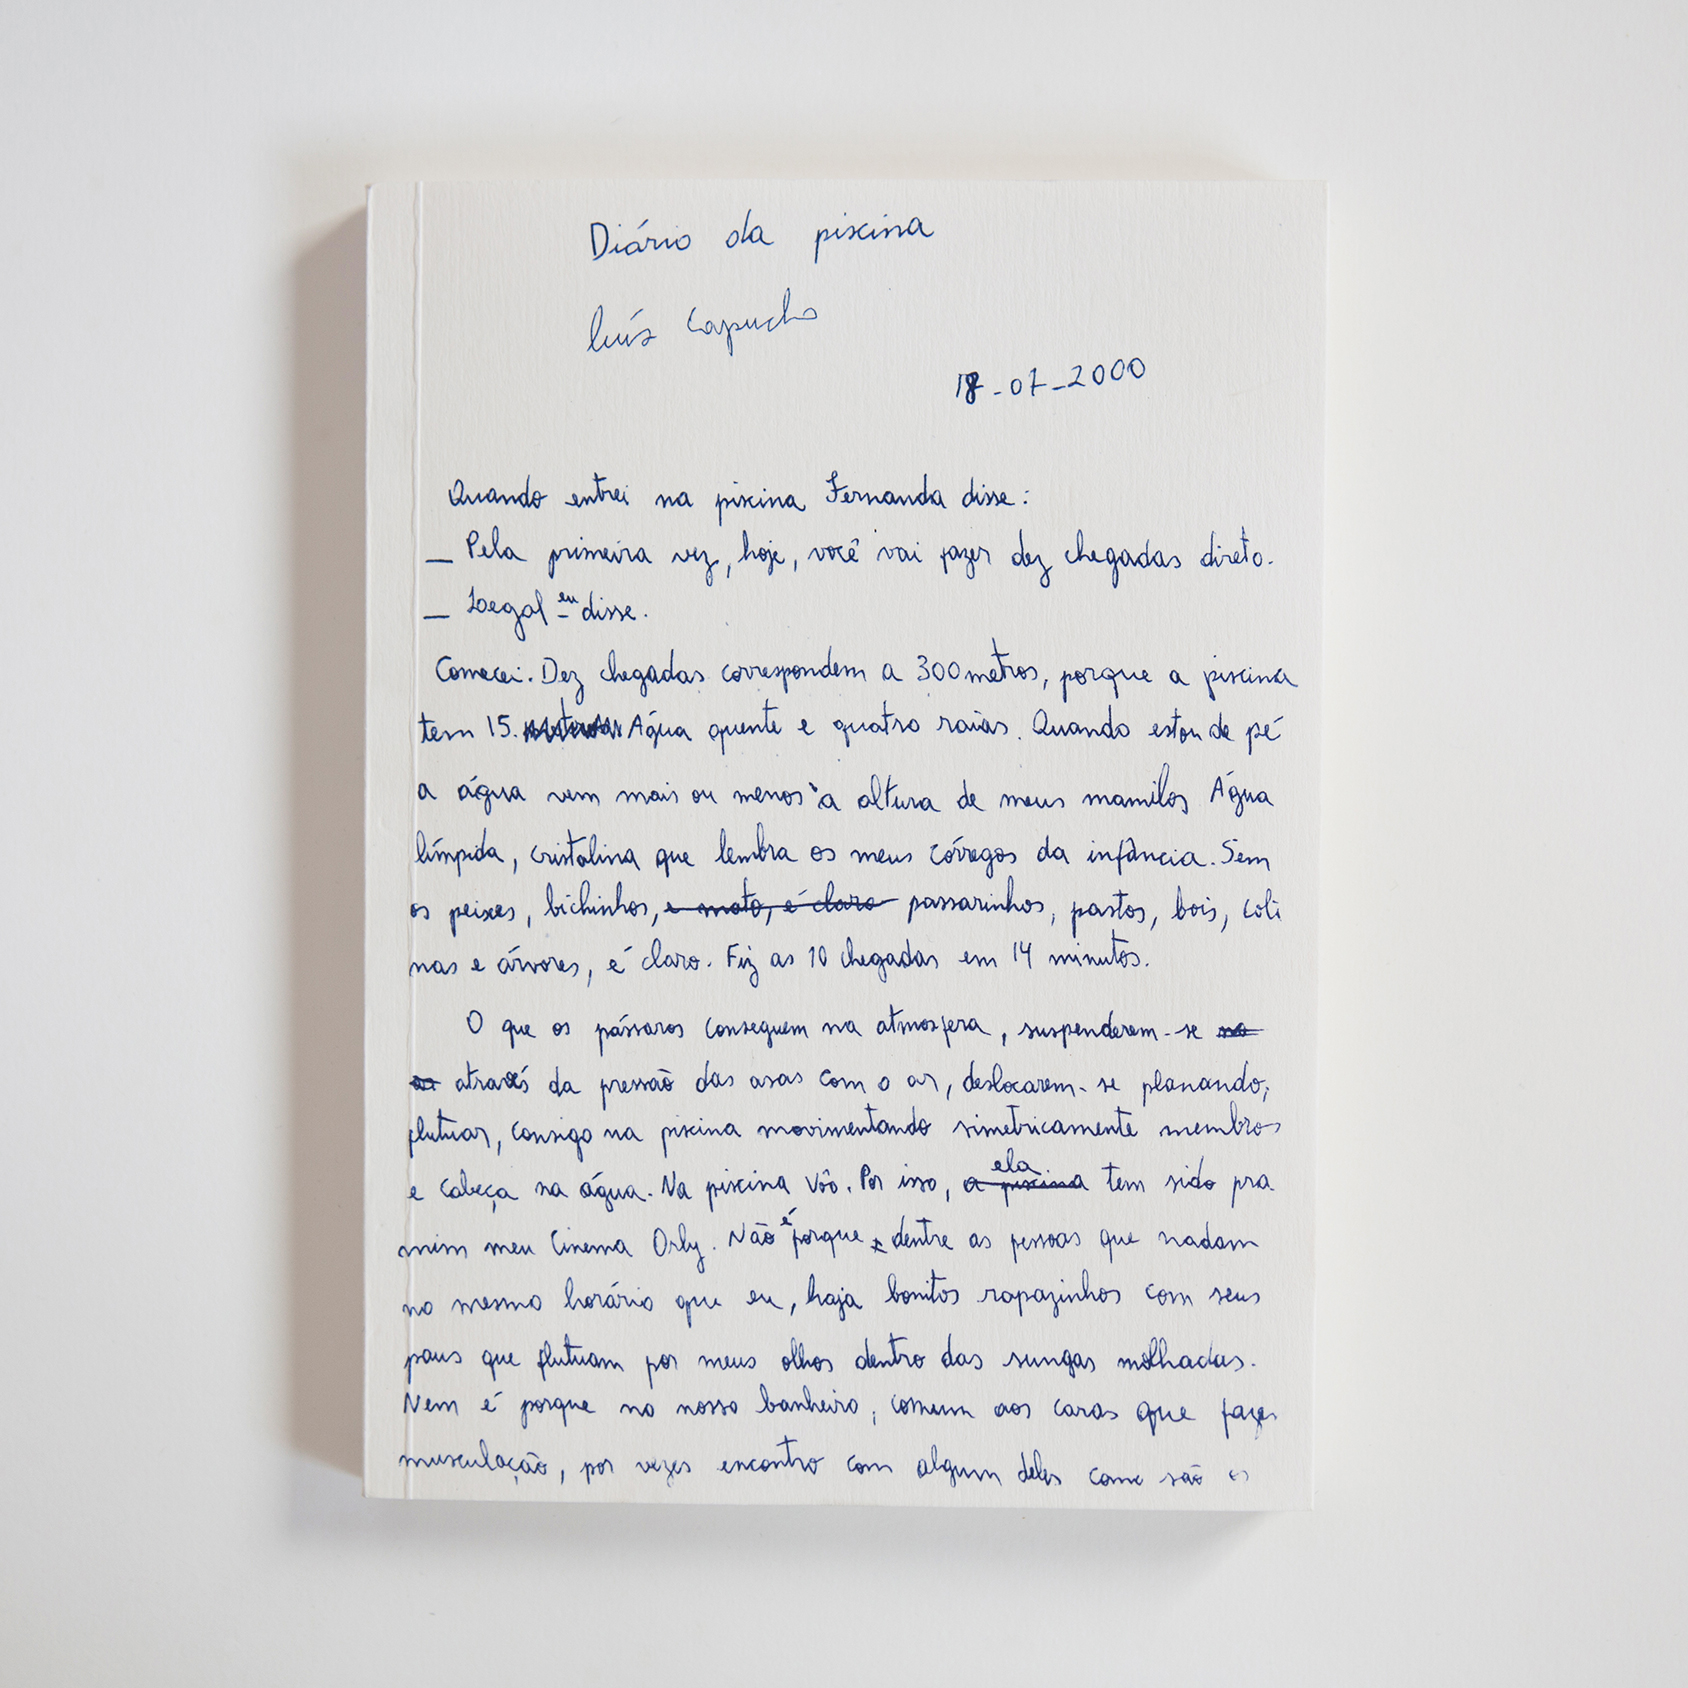 Diário da piscina
luís capucho
18-07-2000
Quando entrei na piscina Fernanda disse:
— Pela primeira vez, hoje, você vai fazer dez chegadas direto.
— Legal eu disse.
Comecei. Dez chegadas correspondem a 300 metros, porque a piscina
tem 15. metros Água quente e quatro raias. Quando estou de pé
a água vem mais ou menos à altura de meus mamilos Água
límpida, cristalina que lembra os meus córregos da infância. Sem
os peixes, bichinhos, e mato, é claro passarinhos, pastos, bois, coli
nas e árvores, é claro. Fiz as 10 chegadas em 14 minutos.
O que os pássaros conseguem na atmosfera, suspenderem-se na
através da pressão das asas com o ar, deslocarem-se planando,
flutuar, consigo na piscina movimentando simetricamente membros
e cabeça na água. Na piscina vôo. Por isso, a piscina ela tem sido pra
mim meu Cinema Orly. Não é porque dentre as pessoas que nadam
no mesmo horário que eu, haja bonitos rapazinhos com seus
paus que flutuam por meus olhos dentro das sungas molhadas.
Nem é porque no nosso banheiro, comum aos caras que fazem
musculação, por vezes encontro com algum deles como são os